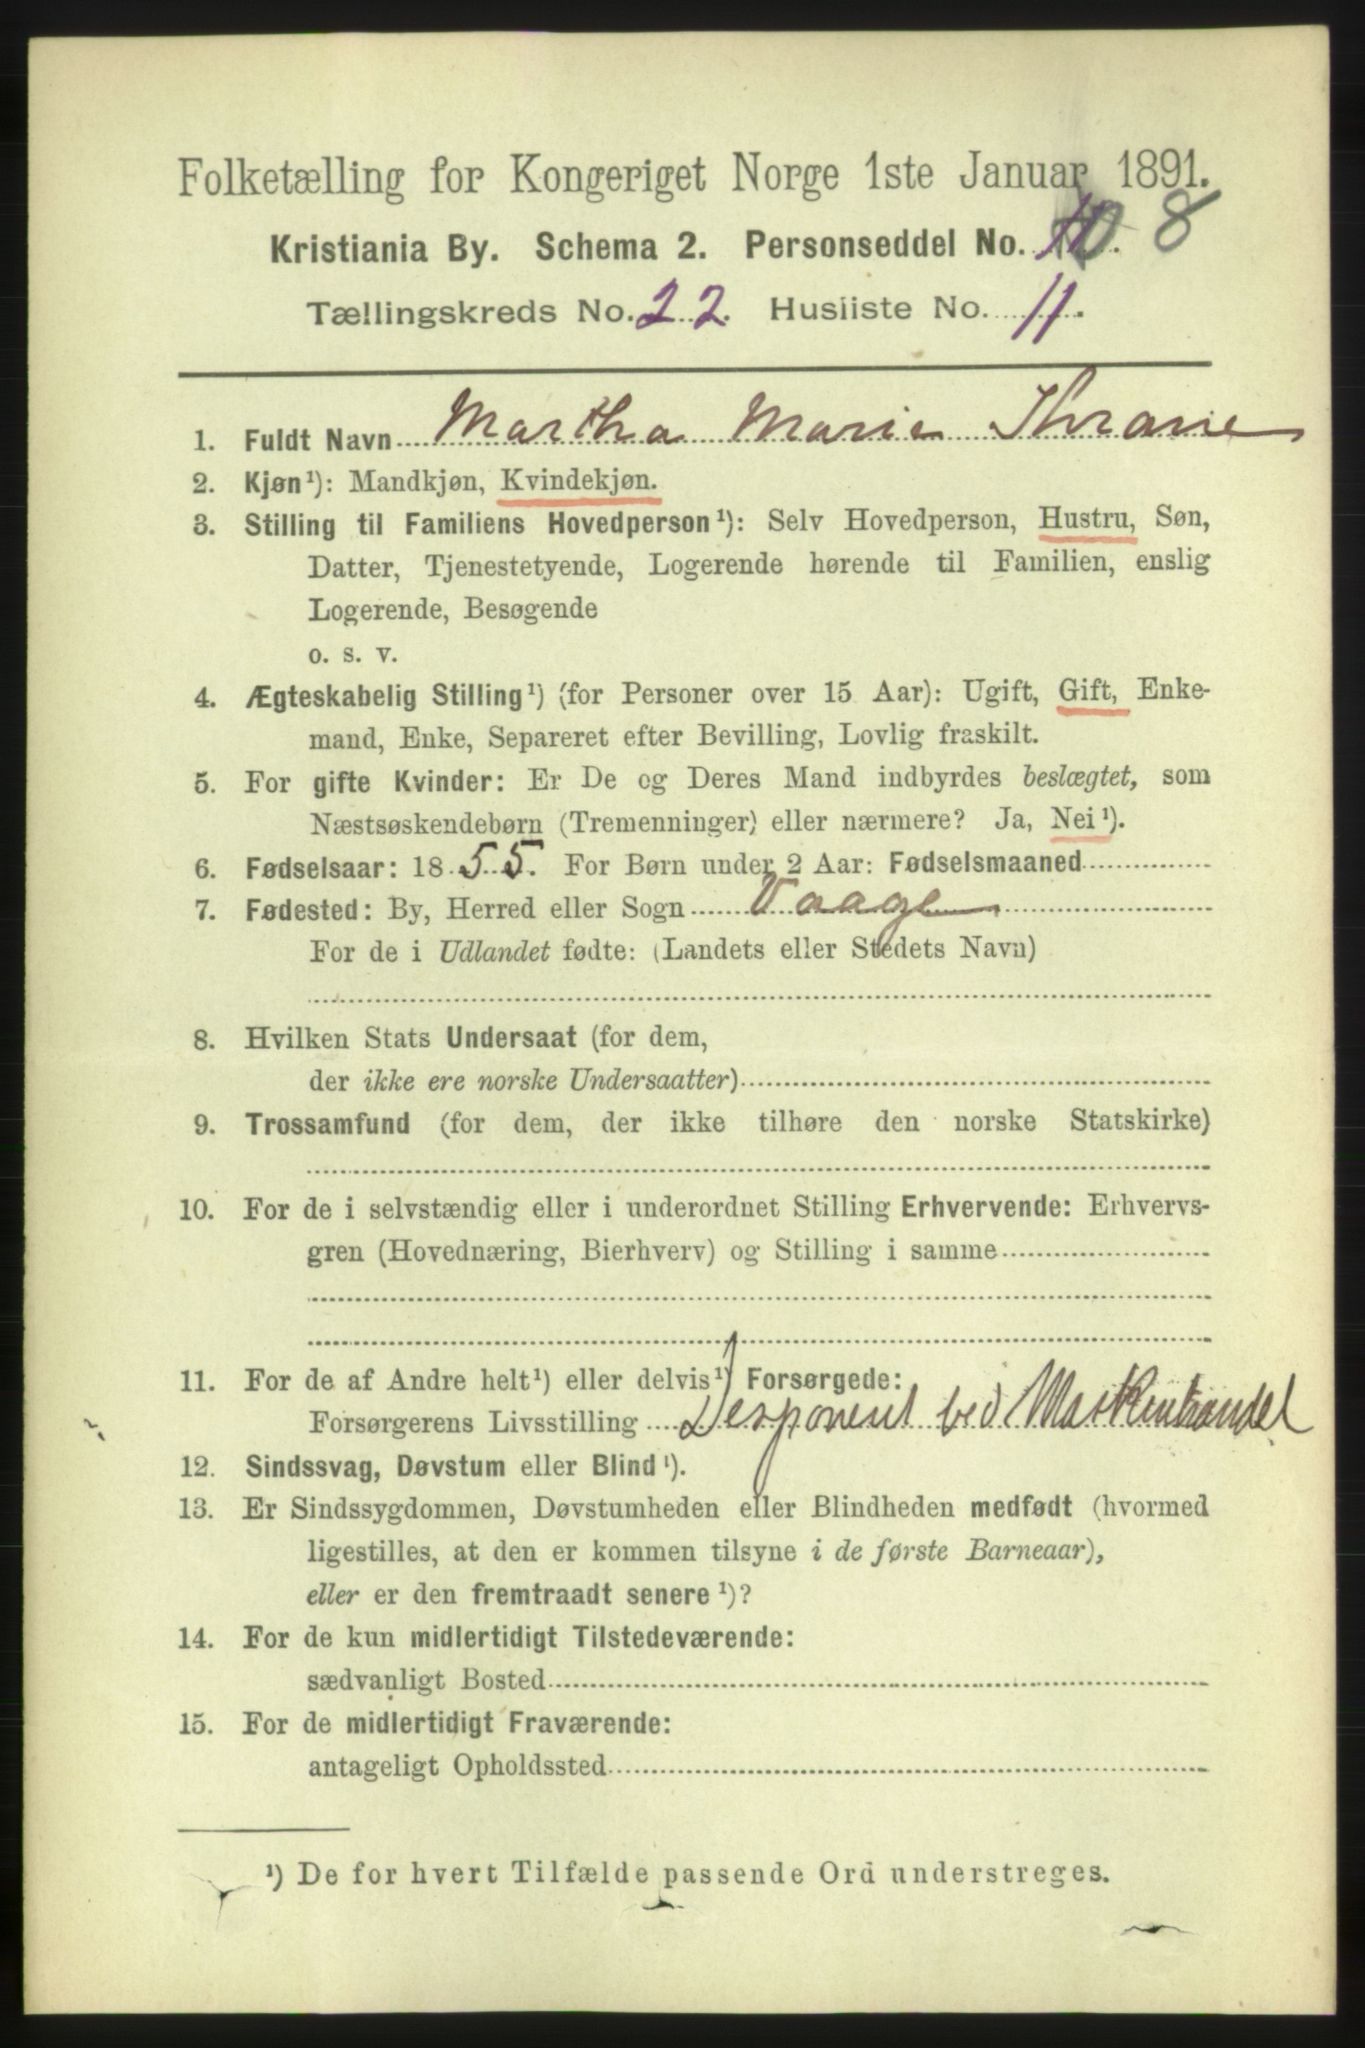 Folketælling for Kongeriget Norge 1ste Januar 1891.
Kristiania By. Schema 2. Personseddel No. 8
Tællingskreds No. 22. Husliste No. 11.
1. Fuldt Navn Martha Marie Thrane
2. Kjøn¹): Mandkjøn, Kvindekjøn.
3. Stilling til Familiens Hovedperson¹): Selv Hovedperson, Hustru, Søn,
Datter, Tjenestetyende, Logerende hørende til Familien, enslig
Logerende, Besøgende
o. s. v.
4. Ægteskabelig Stilling¹) (for Personer over 15 Aar): Ugift, Gift, Enke-
mand, Enke, Separeret efter Bevilling, Lovlig fraskilt.
5. For gifte Kvinder: Er De og Deres Mand indbyrdes beslægtet, som
Næstsøskendebørn (Tremenninger) eller nærmere? Ja, Nei¹).
6. Fødselsaar: 1855. For Børn under 2 Aar: Fødselsmaaned
7. Fødested: By, Herred eller Sogn Vaage
For de i Udlandet fødte: (Landets eller Stedets Navn)
8. Hvilken Stats Undersaat (for dem,
der ikke ere norske Undersaatter)
9. Trossamfund (for dem, der ikke tilhøre den norske Statskirke)
10. For de i selvstændig eller i underordnet Stilling Erhvervende: Erhvervs-
gren (Hovednæring, Bierhverv) og Stilling i samme
11. For de af Andre helt¹) eller delvis¹) Forsørgede:
Forsørgerens Livsstilling Desponent ved Maskinhandel
12. Sindssvag, Døvstum eller Blind¹).
13. Er Sindssygdommen, Døvstumheden eller Blindheden medfødt (hvormed
ligestilles, at den er kommen tilsyne i de første Barneaar),
eller er den fremtraadt senere¹)?
14. For de kun midlertidigt Tilstedeværende:
sædvanligt Bosted
15. For de midlertidigt Fraværende:
antageligt Opholdssted
¹) De for hvert Tilfælde passende Ord understreges.